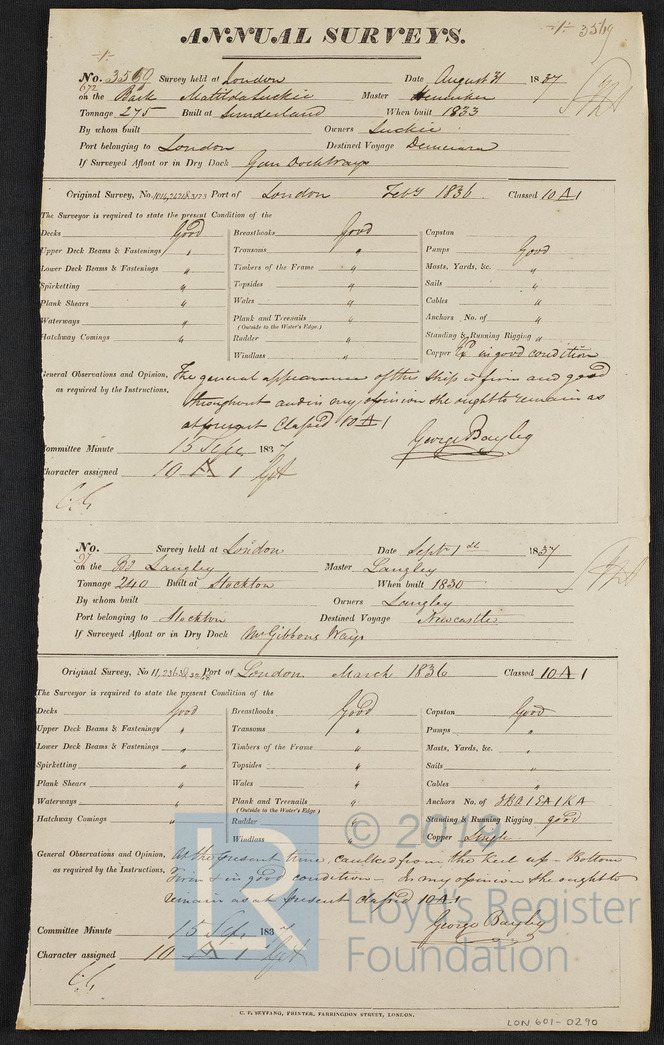 ANNUAL SURVEYS.
3569
No. 3560 Survey held at London Date August 31 1837
672
on the Bark Matilda Luckie Master
Tonnage 275 Built at Sunderland When built 1833
By whom built Owners Luckie
Port belonging to London Destined Voyage Demerara
If Surveyed Afloat or in Dry Dock Gun Dock Ways
Original Survey, No. Port of London Feby 1836 Classed 10 A 1
The Surveyor is required to state the present Condition of the
Decks Good
Upper Deck Beams & Fastenings "
Lower Deck Beams & Fastenings "
Spirketting "
Plank Shears "
Waterways "
Hatchway Comings "
Breasthooks good
Transoms "
Timbers of the Frame "
Topsides "
Wales "
Plank and Treenails "
(Outside to the Water's Edge)
Rudder "
Windlass "
Capstan
Pumps Good
Masts, Yards, &c. "
Sails "
Cables "
Anchors No. of "
Standing & Running Rigging "
Copper in good condition
General Observations and Opinion, The general appearance of the ship is firm and good
as required by the Instructions, throughout and in my opinion she ought to remain as
at present Classed 10 A 1
George Bayley
Committee Minute 15 Sepr. 1837
Character assigned 10 A 1
No. Survey held at London Date Septr 1st 1837
97
on the Bg Langley Master Langley
Tonnage 240 Built at Stockton When built 1830
By whom built Owners Langley
Port belonging to Stockton Destined Voyage Newcastle
If Surveyed Afloat or in Dry Dock Mr Gibbons Ways
Original Survey, No Port of London March 1836 Classed 10 A 1
The Surveyor is required to state the present Condition of the
Decks good
Upper Deck Beams & Fastenings "
Lower Deck Beams & Fastenings "
Spirketting "
Plank Shears "
Waterways "
Hatchway Comings "
Breasthooks Good
Transoms "
Timbers of the Frame "
Topsides "
Wales "
Plank and Treenails "
(Outside to the Water's Edge)
Rudder "
Windlass "
Capstan Good
Pumps "
Masts, Yards, &c. "
Sails "
Cables "
Anchors No. of 3 BA 1 SA 1 KA
Standing & Running Rigging good
Copper Single
General Observations and Opinion, At the present time, caulked from the keel up - Bottom
as required by the Instructions, Firm & in good condition - In my opinion she ought to
remain as at present classed 10 A 1
George Bayley
Committee Minute 15 Sepr 1837
Character assigned 10 A 1
C. F. SEYFANG, PRINTER, FARRINGDON STREET, LONDON.
LON 601-0290
© 2019
Lloyd's Register
Foundation
LR